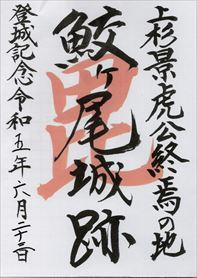 上杉景虎公終焉の地
毘
鮫ヶ尾城跡
登城記念令和五年六月二十二日